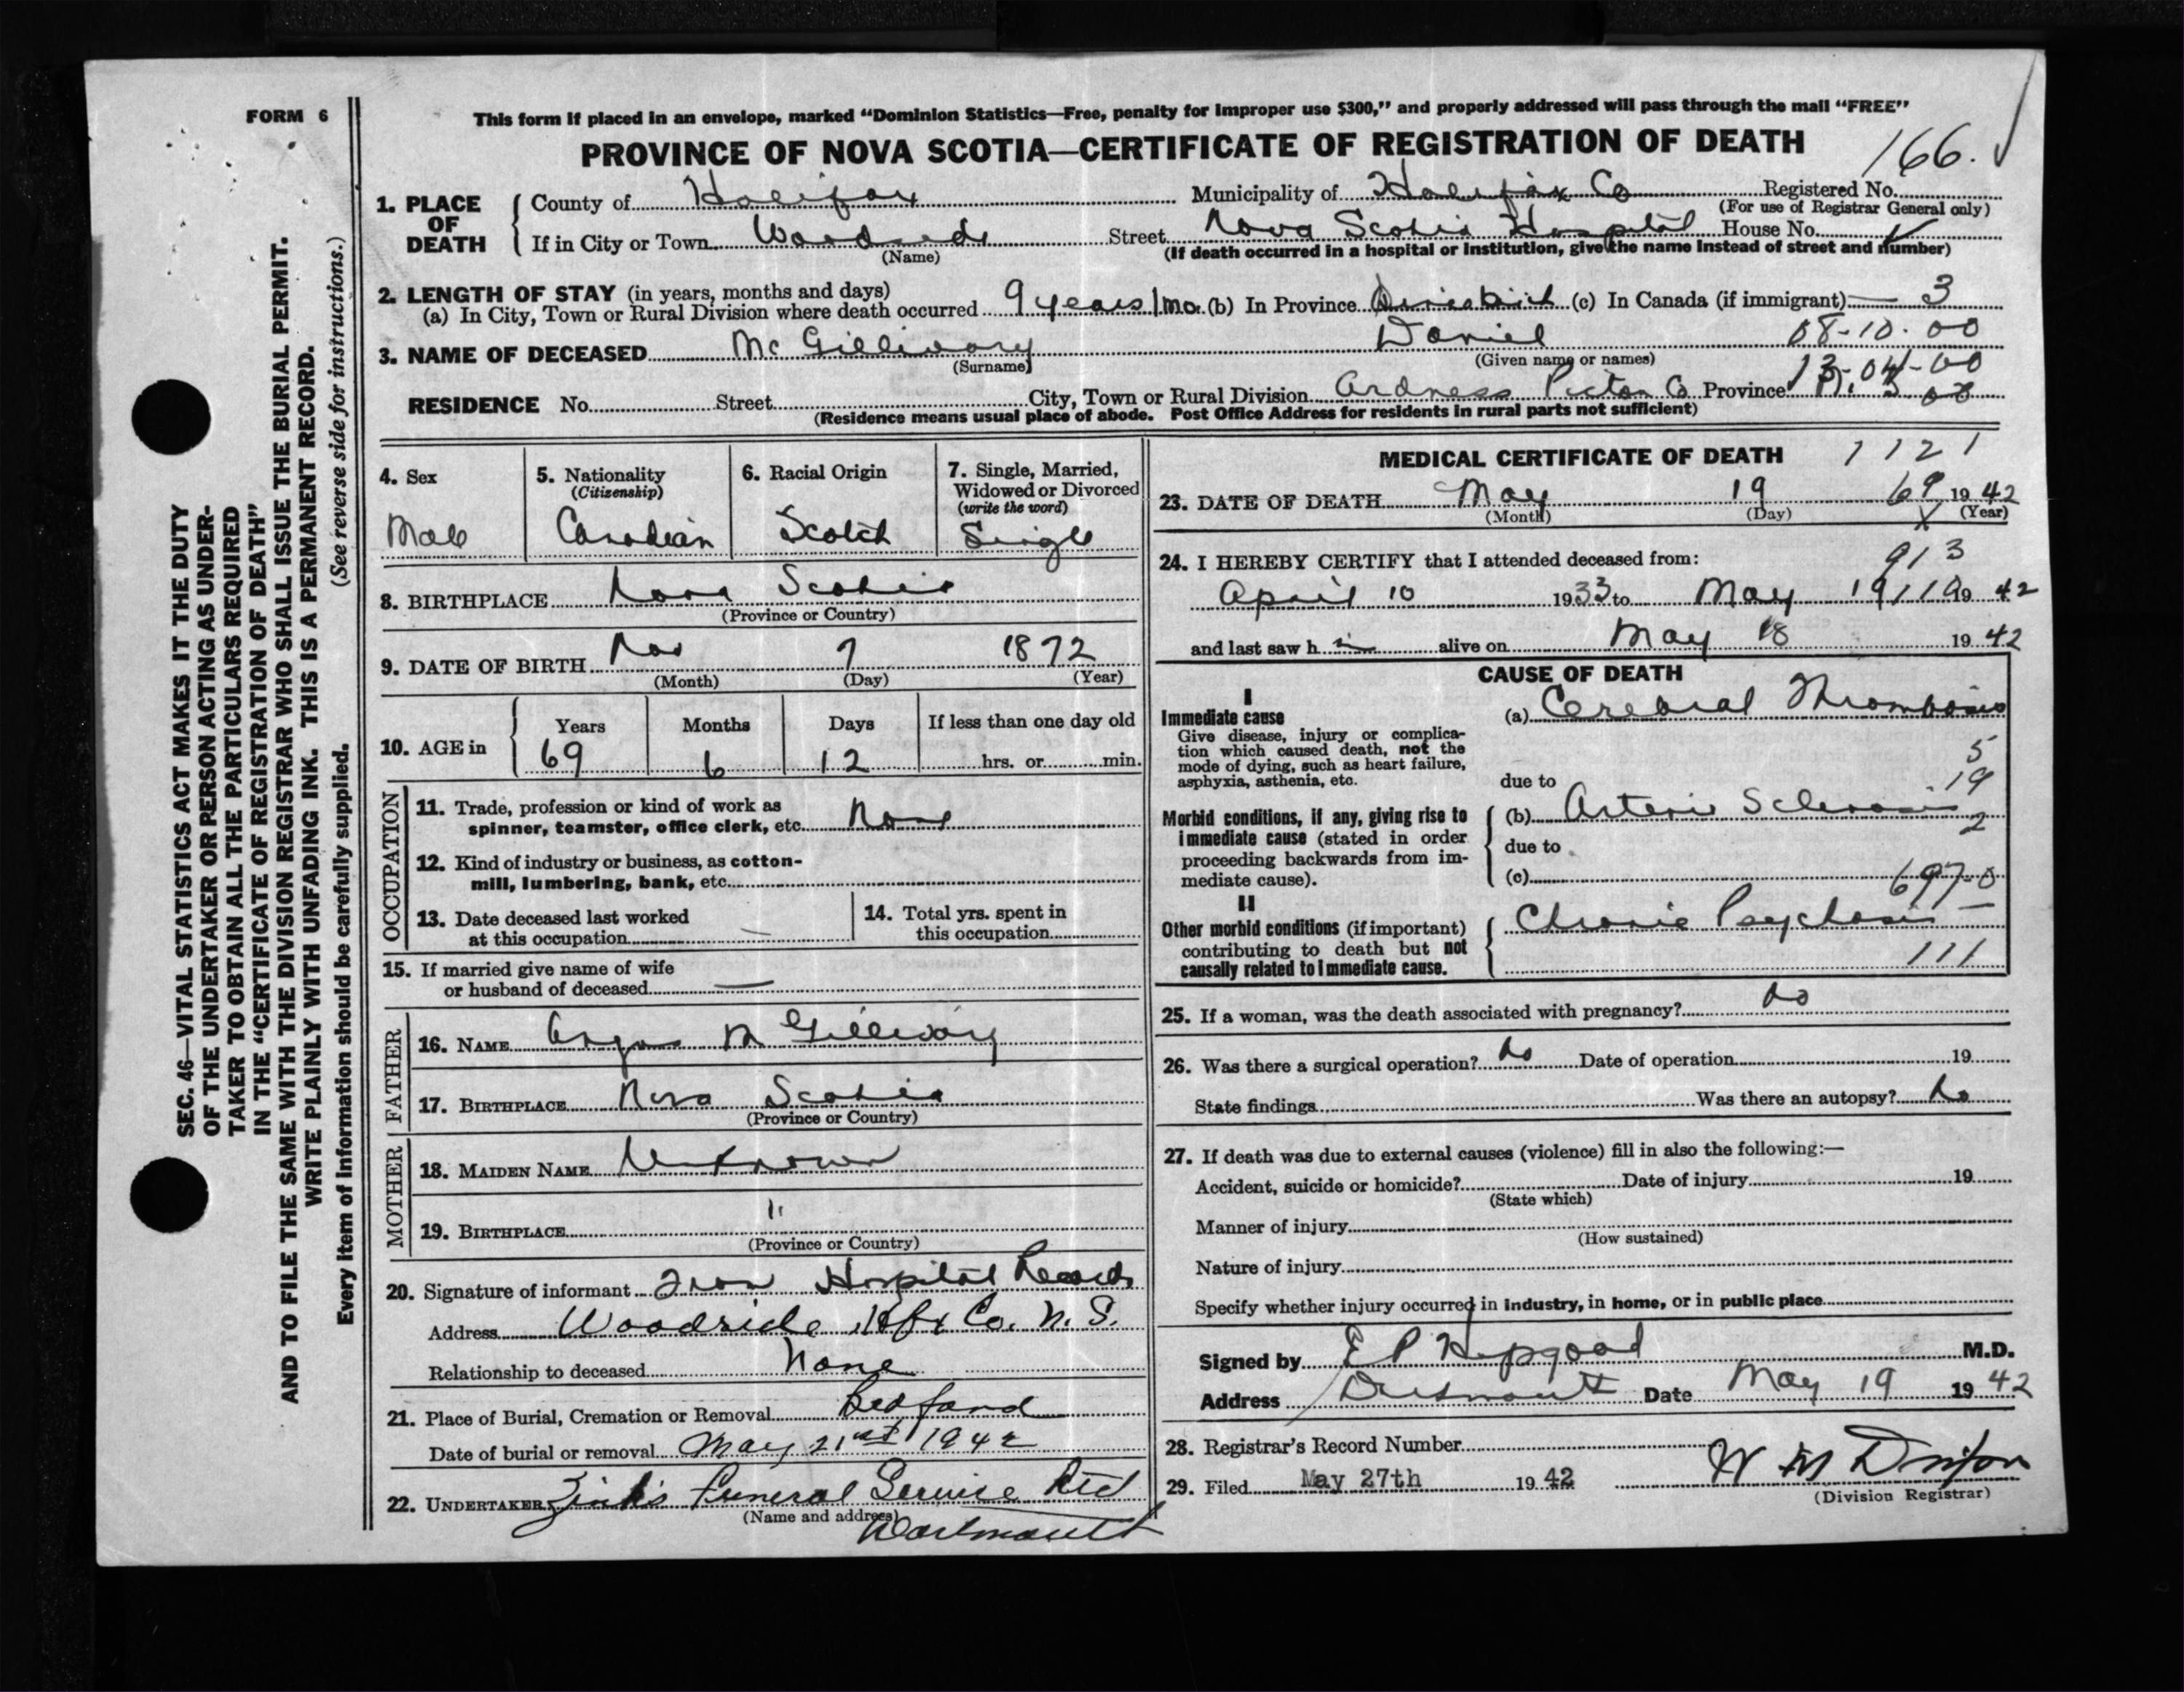 FORM 6
This form if placed in an envelope, marked “Dominion Statistics—Free, penalty for improper use $300,” and properly addressed will pass through the mail “FREE”
PROVINCE OF NOVA SCOTIA—CERTIFICATE OF REGISTRATION OF DEATH
166.
1. PLACE OF DEATH
County of Halifax Municipality of Halifax Co Registered No.
(For use of Registrar General only)
If in City or Town Woodside Street Nova Scotia Hospital House No.
(Name) (If death occurred in a hospital or institution, give the name instead of street and number)
2. LENGTH OF STAY (in years, months and days)
(a) In City, Town or Rural Division where death occurred 9 years 1 mo. (b) In Province (c) In Canada (if immigrant) — 3
08-10-00
3. NAME OF DECEASED McGillivary Daniel
(Surname) (Given name or names)
13-04-00
RESIDENCE No. Street City, Town or Rural Division Ardness Pictou Co Province N. S
(Residence means usual place of abode. Post Office Address for residents in rural parts not sufficient)
4. Sex
Male
5. Nationality
(Citizenship)
Canadian
6. Racial Origin
Scotch
7. Single, Married, Widowed or Divorced
(write the word)
Single
8. BIRTHPLACE Nova Scotia
(Province or Country)
9. DATE OF BIRTH Nov 7 1872
(Month) (Day) (Year)
10. AGE in
Years Months Days If less than one day old
69 6 12 hrs. or min.
OCCUPATION
11. Trade, profession or kind of work as
spinner, teamster, office clerk, etc. None
12. Kind of industry or business, as cotton-
mill, lumbering, bank, etc.
13. Date deceased last worked
at this occupation —
14. Total yrs. spent in
this occupation
15. If married give name of wife
or husband of deceased —
FATHER
16. NAME Angus McGillivary
17. BIRTHPLACE Nova Scotia
(Province or Country)
MOTHER
18. MAIDEN NAME Unknown
19. BIRTHPLACE "
(Province or Country)
20. Signature of informant From Hospital Records
Address Woodside Hfx Co. N. S.
Relationship to deceased None
21. Place of Burial, Cremation or Removal Bedford
Date of burial or removal May 21st 1942
22. UNDERTAKER Zink's Funeral Service Ltd
(Name and address)
Dartmouth
MEDICAL CERTIFICATE OF DEATH
1121
23. DATE OF DEATH May 19 69 1942
(Month) (Day) (Year)
X
24. I HEREBY CERTIFY that I attended deceased from:
913
April 10 1933 to May 19 1942
and last saw h alive on May 18 1942
CAUSE OF DEATH
I
Immediate cause
Give disease, injury or complica-
tion which caused death, not the
mode of dying, such as heart failure,
asphyxia, asthenia, etc.
(a) Cerebral Thrombosis
5
due to
19
Morbid conditions, if any, giving rise to
immediate cause (stated in order
proceeding backwards from im-
mediate cause).
(b) Arterio Sclerosis
2
due to
(c)
697-0
II
Other morbid conditions (if important)
contributing to death but not
causally related to immediate cause.
Chronic Psychosis
111
25. If a woman, was the death associated with pregnancy? No
26. Was there a surgical operation? No Date of operation 19
State findings Was there an autopsy? No
27. If death was due to external causes (violence) fill in also the following:—
Accident, suicide or homicide? Date of injury 19
(State which)
Manner of injury
(How sustained)
Nature of injury
Specify whether injury occurred in industry, in home, or in public place
Signed by E P Hopgood M.D.
Address Dartmouth Date May 19 1942
28. Registrar's Record Number
29. Filed May 27th 1942
(Division Registrar)
SEC. 46—VITAL STATISTICS ACT MAKES IT THE DUTY
OF THE UNDERTAKER OR PERSON ACTING AS UNDER-
TAKER TO OBTAIN ALL THE PARTICULARS REQUIRED
IN THE “CERTIFICATE OF REGISTRATION OF DEATH”
AND TO FILE THE SAME WITH THE DIVISION REGISTRAR WHO SHALL ISSUE THE BURIAL PERMIT.
WRITE PLAINLY WITH UNFADING INK. THIS IS A PERMANENT RECORD.
Every item of information should be carefully supplied. (See reverse side for instructions.)